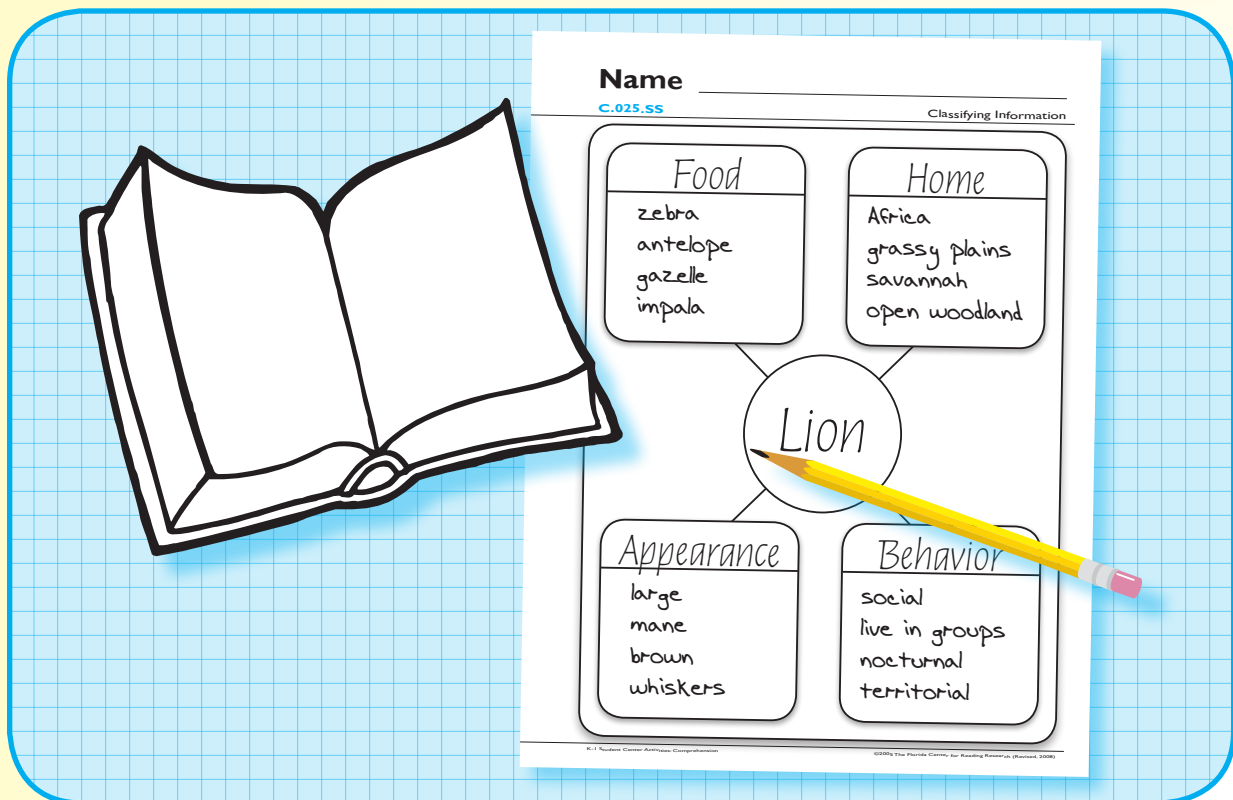 Name
C.025.SS
Classifying Information
Food
zebra
antelope
gazelle
impala
Home
Africa
grassy plains
savannah
open woodland
Lion
Appearance
large
mane
brown
whiskers
Behavior
social
live in groups
nocturnal
territorial
K-1 Student Center Activities: Comprehension
©2005 The Florida Center for Reading Research (Revised, 2008)